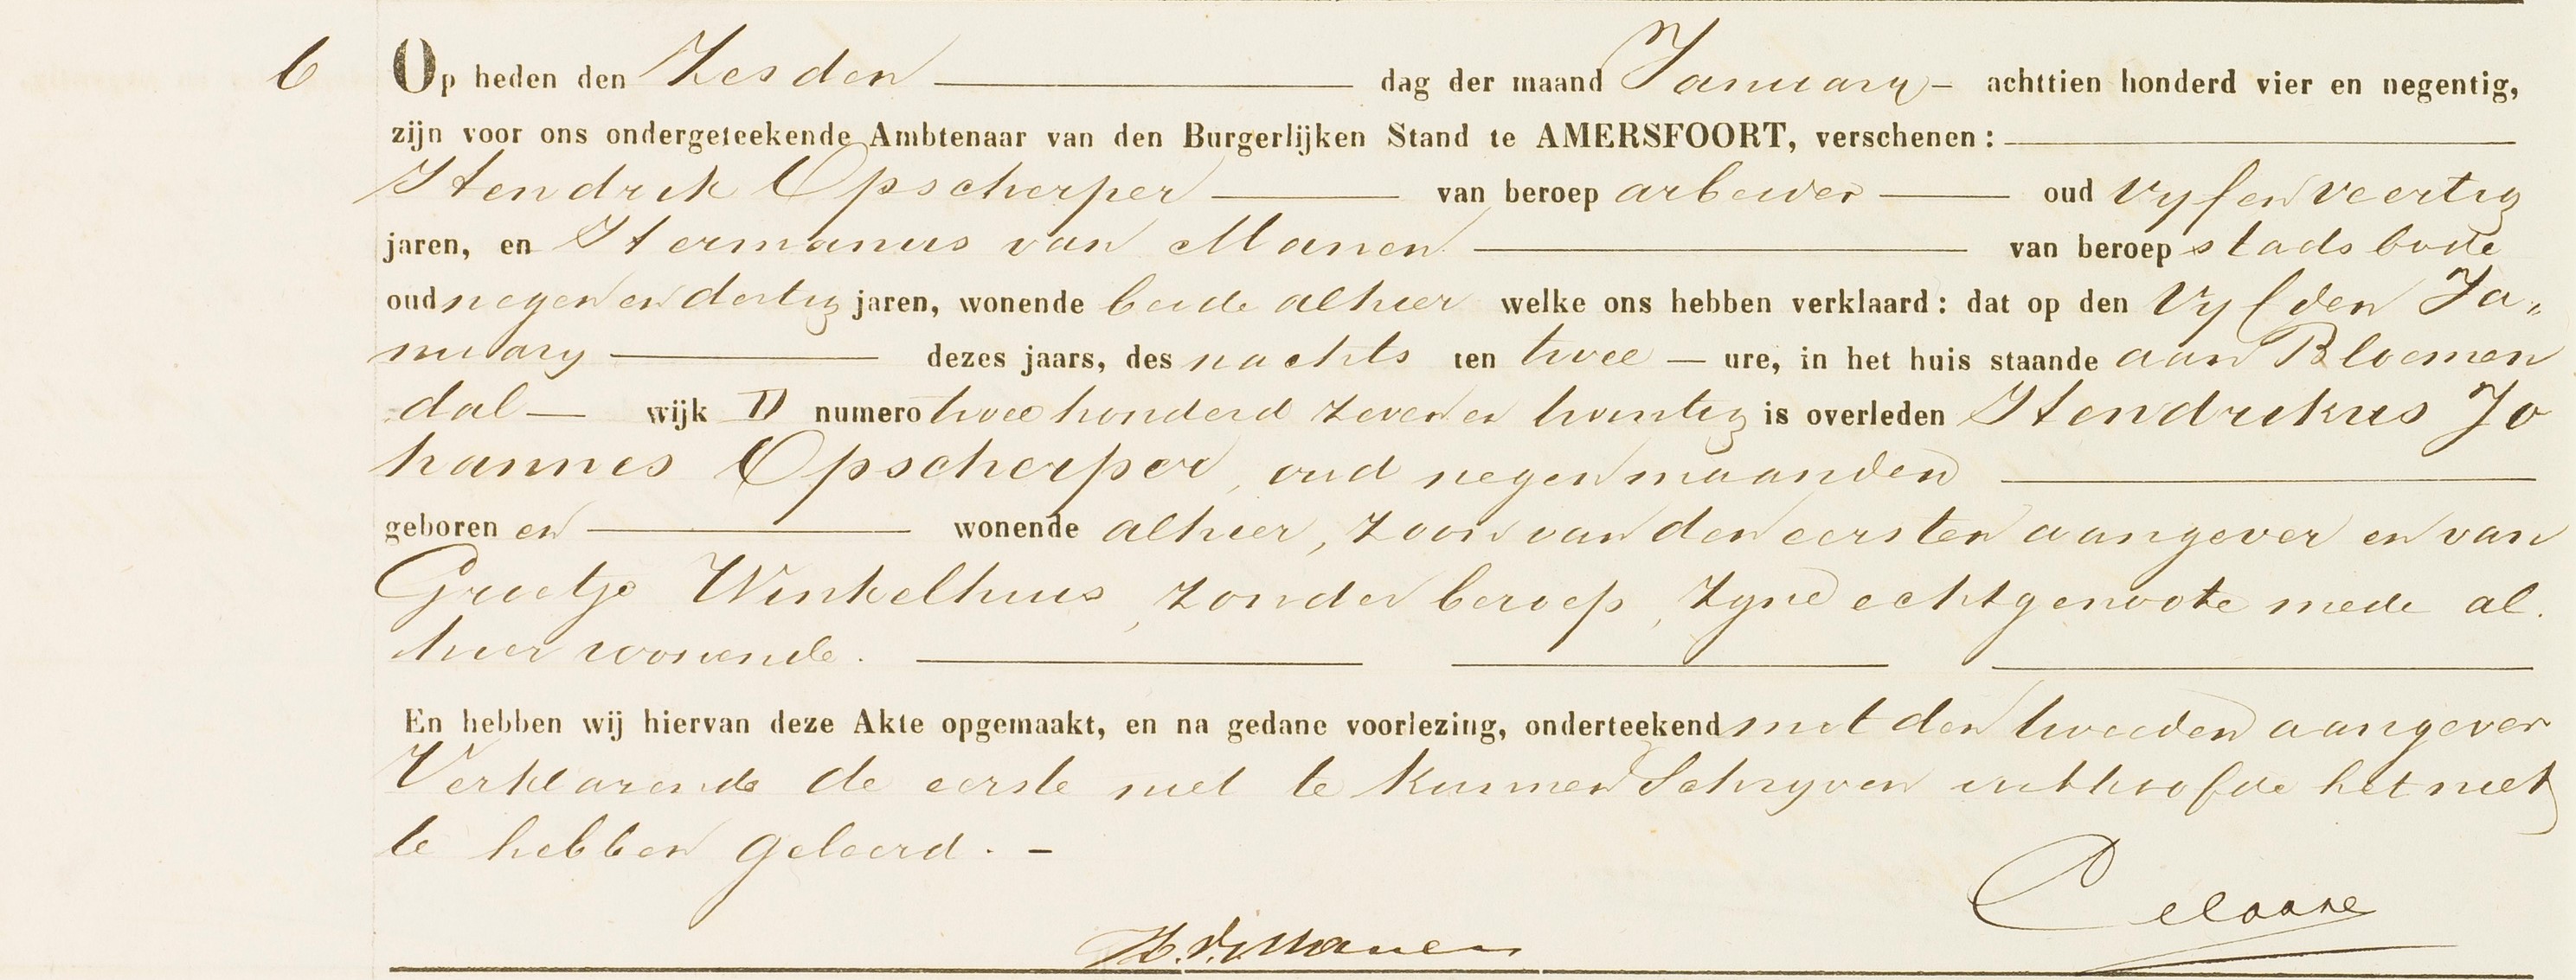 6 Op heden den Zesden dag der maand January achttien honderd vier en negentig,
zijn voor ons ondergeteekende Ambtenaar van den Burgerlijken Stand te AMERSFOORT, verschenen:
Hendrik Opscherper van beroep arbeider oud vyf en veertig
jaren, en Hermanus van Manen van beroep stadsbode
oud negen en dertig jaren, wonende beide alhier welke ons hebben verklaard: dat op den Vyfden Ja„
nuary dezes jaars, des nachts ten twee ure, in het huis staande aan Bloemen
dal wijk D numero twee honderd zeven en twintig is overleden Hendrikus Jo
hannes Opscherper, oud negen maanden
geboren en wonende alhier, zoon van den eersten aangever en van
Grietje Winkelhuis, zonder beroep, zyne echtgenoote mede al
hier wonende.
En hebben wij hiervan deze Akte opgemaakt, en na gedane voorlezing, onderteekend met den tweeden aangever
Verklarende de eerste niet te kunnen Schryven uithoofde het niet
te hebben geleerd. -
H. v. Manen